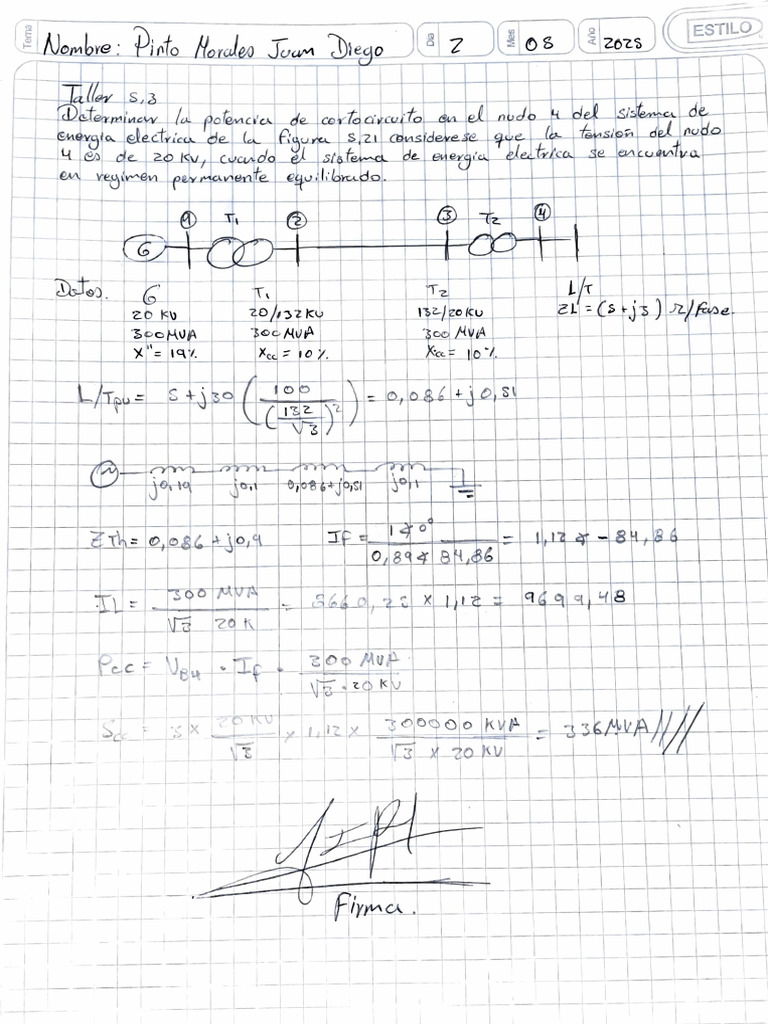 Tema Nombre: Pinto Morales Juan Diego Día 2 Mes 08 Año 2025 ESTILO
Taller 5.3
Determinar la potencia de cortocircuito en el nudo 4 del sistema de
energia electrica de la figura 5.21 considerese que la tension del nudo
4 es de 20 KV, cuando el sistema de energia electrica se encuentra
en regimen permanente equilibrado.
1 T1 2 3 T2 4
G
Datos. G T1 T2 L/T
20 KV 20/132KV 132/20KV ZL = (5+j3) Ω/fase.
300MVA 300MVA 300MVA
X" = 19% Xcc = 10% Xcc = 10%
L/Tpu = 5+j30 (100/(132/√3)²) = 0,086+j0,51
j0,19 j0,1 0,086+j0,51 j0,1
ZTh = 0,086+j0,9 If = 1∡0°/0,89∡84,86 = 1,12∡-84,86
IL = 300 MVA/√3 20K = 8660,25 × 1,12 = 9699,48
Pcc = VB4 · If · 300 MVA/√3·20 KV
Scc = 3 × 20 KV/√3 × 1,12 × 300000 KVA/√3 × 20 KV = 336MVA////
Firma.